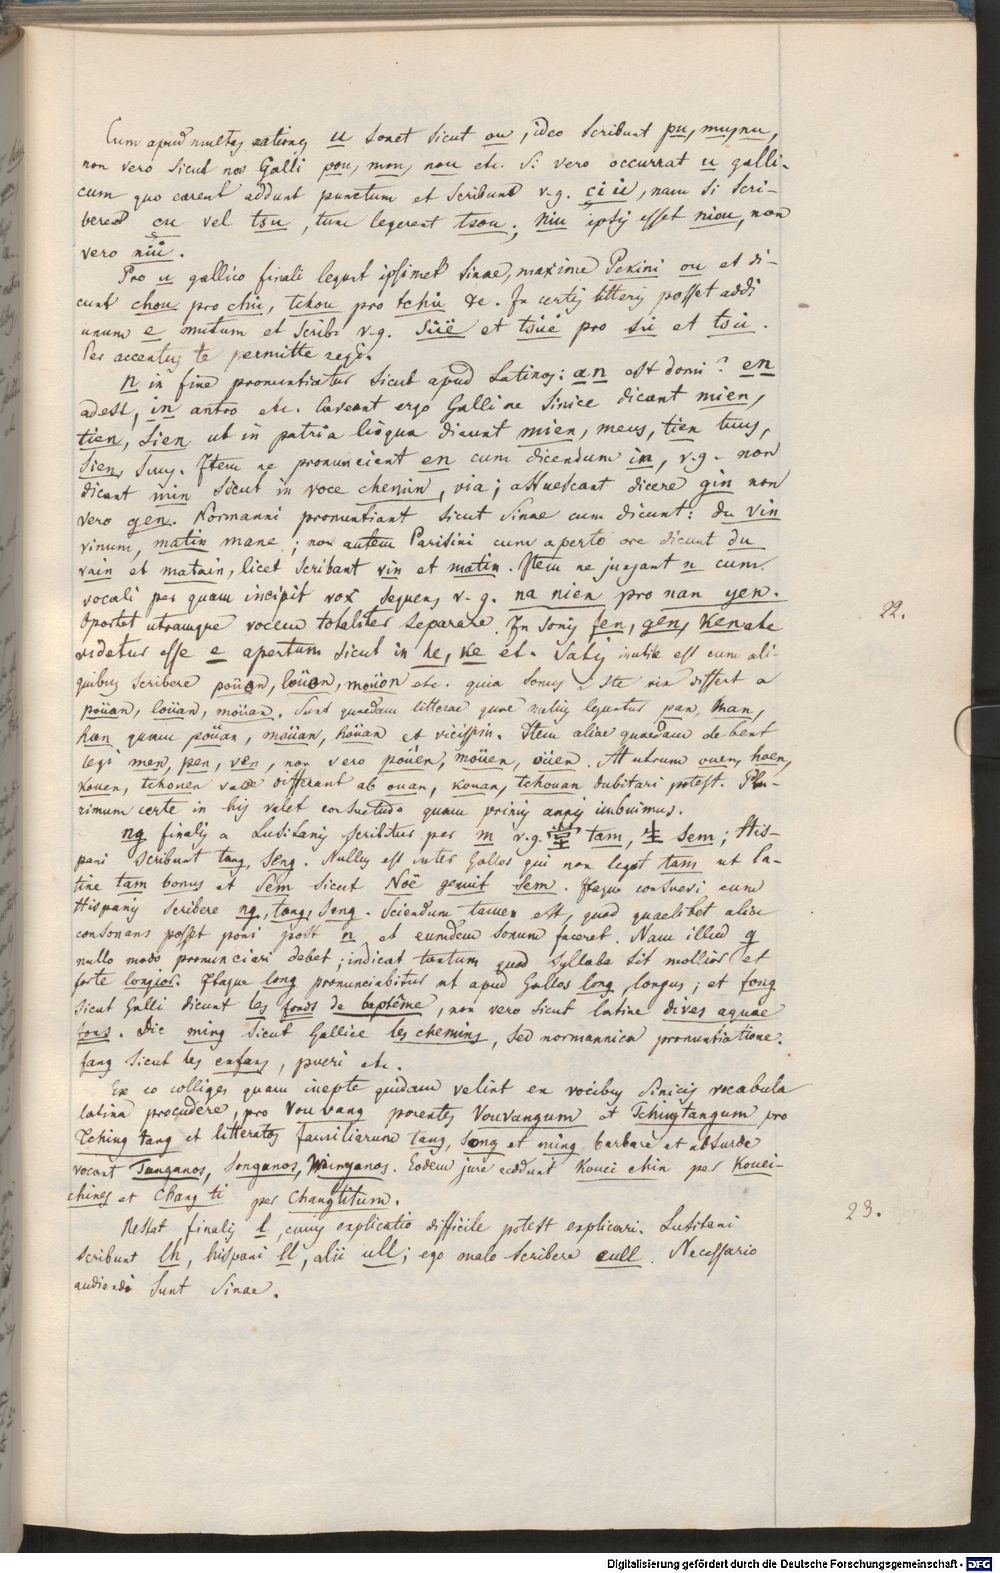 Cum apud multas nationes u sonet sicut ou, ideo scribunt pu, mu, nu,
non vero sicut nos Galli pou, mou, nou etc. Si vero occurrat u galli-
cum quo carent addunt punctum et scribunt v.g. çiu̇, nam si scri-
berent çu vel tsu, tunc legerent tsou; niu ipsis esset niou, non
vero niu̇.
Pro u gallico finali legunt ipsimet Sinae, maxime Pekini ou et di-
cunt chou pro chu, tchou pro tchu &c. In certis litteris posset addi
unum e mutum et scribi v.g. süë et tsüë pro su et tsu.
Per accentus te permitte regi.
n in fine pronuntiatur sicut apud Latinos: an est domi? en
adest, in antro etc. Caveant ergo Galli ne Sinice dicant mien,
tien, sien ut in patria lingua dicunt mien, meus, tien tuus,
sien, suus. Item ne pronuncient en cum dicendum in, v.g. non
dicant min sicut in voce chemin, via; assuescant dicere gin non
vero gen. Normanni pronuntiant sicut Sinae cum dicunt: du vin
vinum, matin mane; non autem Parisini cum aperto ore dicunt du
vain et matain, licet scribant vin et matin. Item ne jungant n cum
vocali per quam incipit vox sequens v.g. na nien pro nan yen.
Oportet utramque vocem totaliter separare. In sonis fen, gen, Ken etc
videtur esse e apertum sicut in he, ke et. Satis inutile est cum ali-
quibus scribere poüon, loüon, moüon etc. quia sonus iste vix differt a
poüan, loüan, moüan. Sunt quaedam litterae quae melius leguntur pan, man,
han quam poüan, moüan, hoüan et vicissim. Item aliae quaedam debent
legi men, pen, ven, non vero poüen, moüen, oüen. At utrum ouen, hoen,
kouen, tchouen valde differant ab ouan, kouan, tchouan dubitari potest. Plu-
rimum certe in his valet consuetudo quam primis annis imbuimus.
22.
ng finalis a Lusitanis scribitur per m v.g. 堂 tam, 生 sem; His-
pani scribunt tang, seng. Nullus est inter Gallos qui non legat tam ut la-
tine tam bonus et Sem sicut Noë genuit Sem. Itaque consuevi cum
Hispanis scribere ng, tang, seng. Sciendum tamen est, quod quaelibet alia
consonans posset poni post n et eumdem sonum faceret. Nam illud g
nullo modo pronunciari debet; indicat tantum quod syllaba sit mollior et
forte longior. Itaque long pronunciabitur ut apud Gallos long, longus; et fong
sicut Galli dicunt les fonds de baptême, non vero sicut latine dives aquae
fons. Dic ming sicut Gallice les chemins, sed normannica pronuntiatione.
fang sicut les enfans, pueri etc.
Ex eo colliges quam inepte quidam velint ex vocibus Sinicis vocabula
latina procudere, pro Vou vang ponentes Vouvangum et Tchingtangum pro
Tching tang et litteratos familiarum tang, song et ming barbare et absurde
vocant Tanganos, Songanos, Minganos. Eodem jure reddunt Kouei chin per Kouei-
chines et Chang ti per Changtitum.
Restat finalis l, cujus explicatio difficile potest explicari. Lusitani
scribunt lh, hispani ll, alii ull; ego malo scribere eull. Necessario
audiendi sunt Sinae.
23.
Digitalisierung gefördert durch die Deutsche Forschungsgemeinschaft - DFG